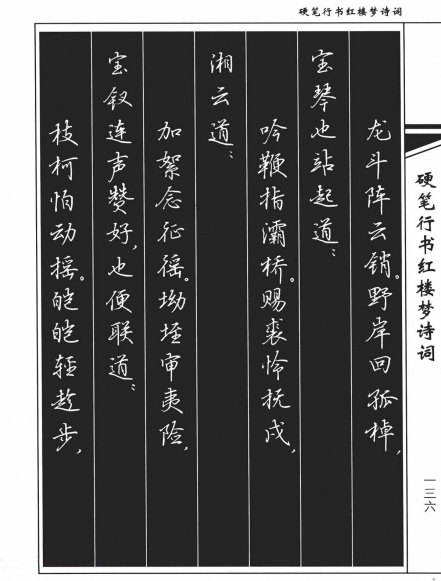 硬笔行书红楼梦诗词
硬笔行书红楼梦诗词
一三六
龙斗阵云销。野岸回孤棹,
宝琴也站起道:
吟鞭指灞桥。赐裘怜抚戍,
湘云道:
加絮念征徭。坳垤审夷险,
宝钗连声赞好,也便联道:
枝柯怕动摇。皑皑轻趁步,